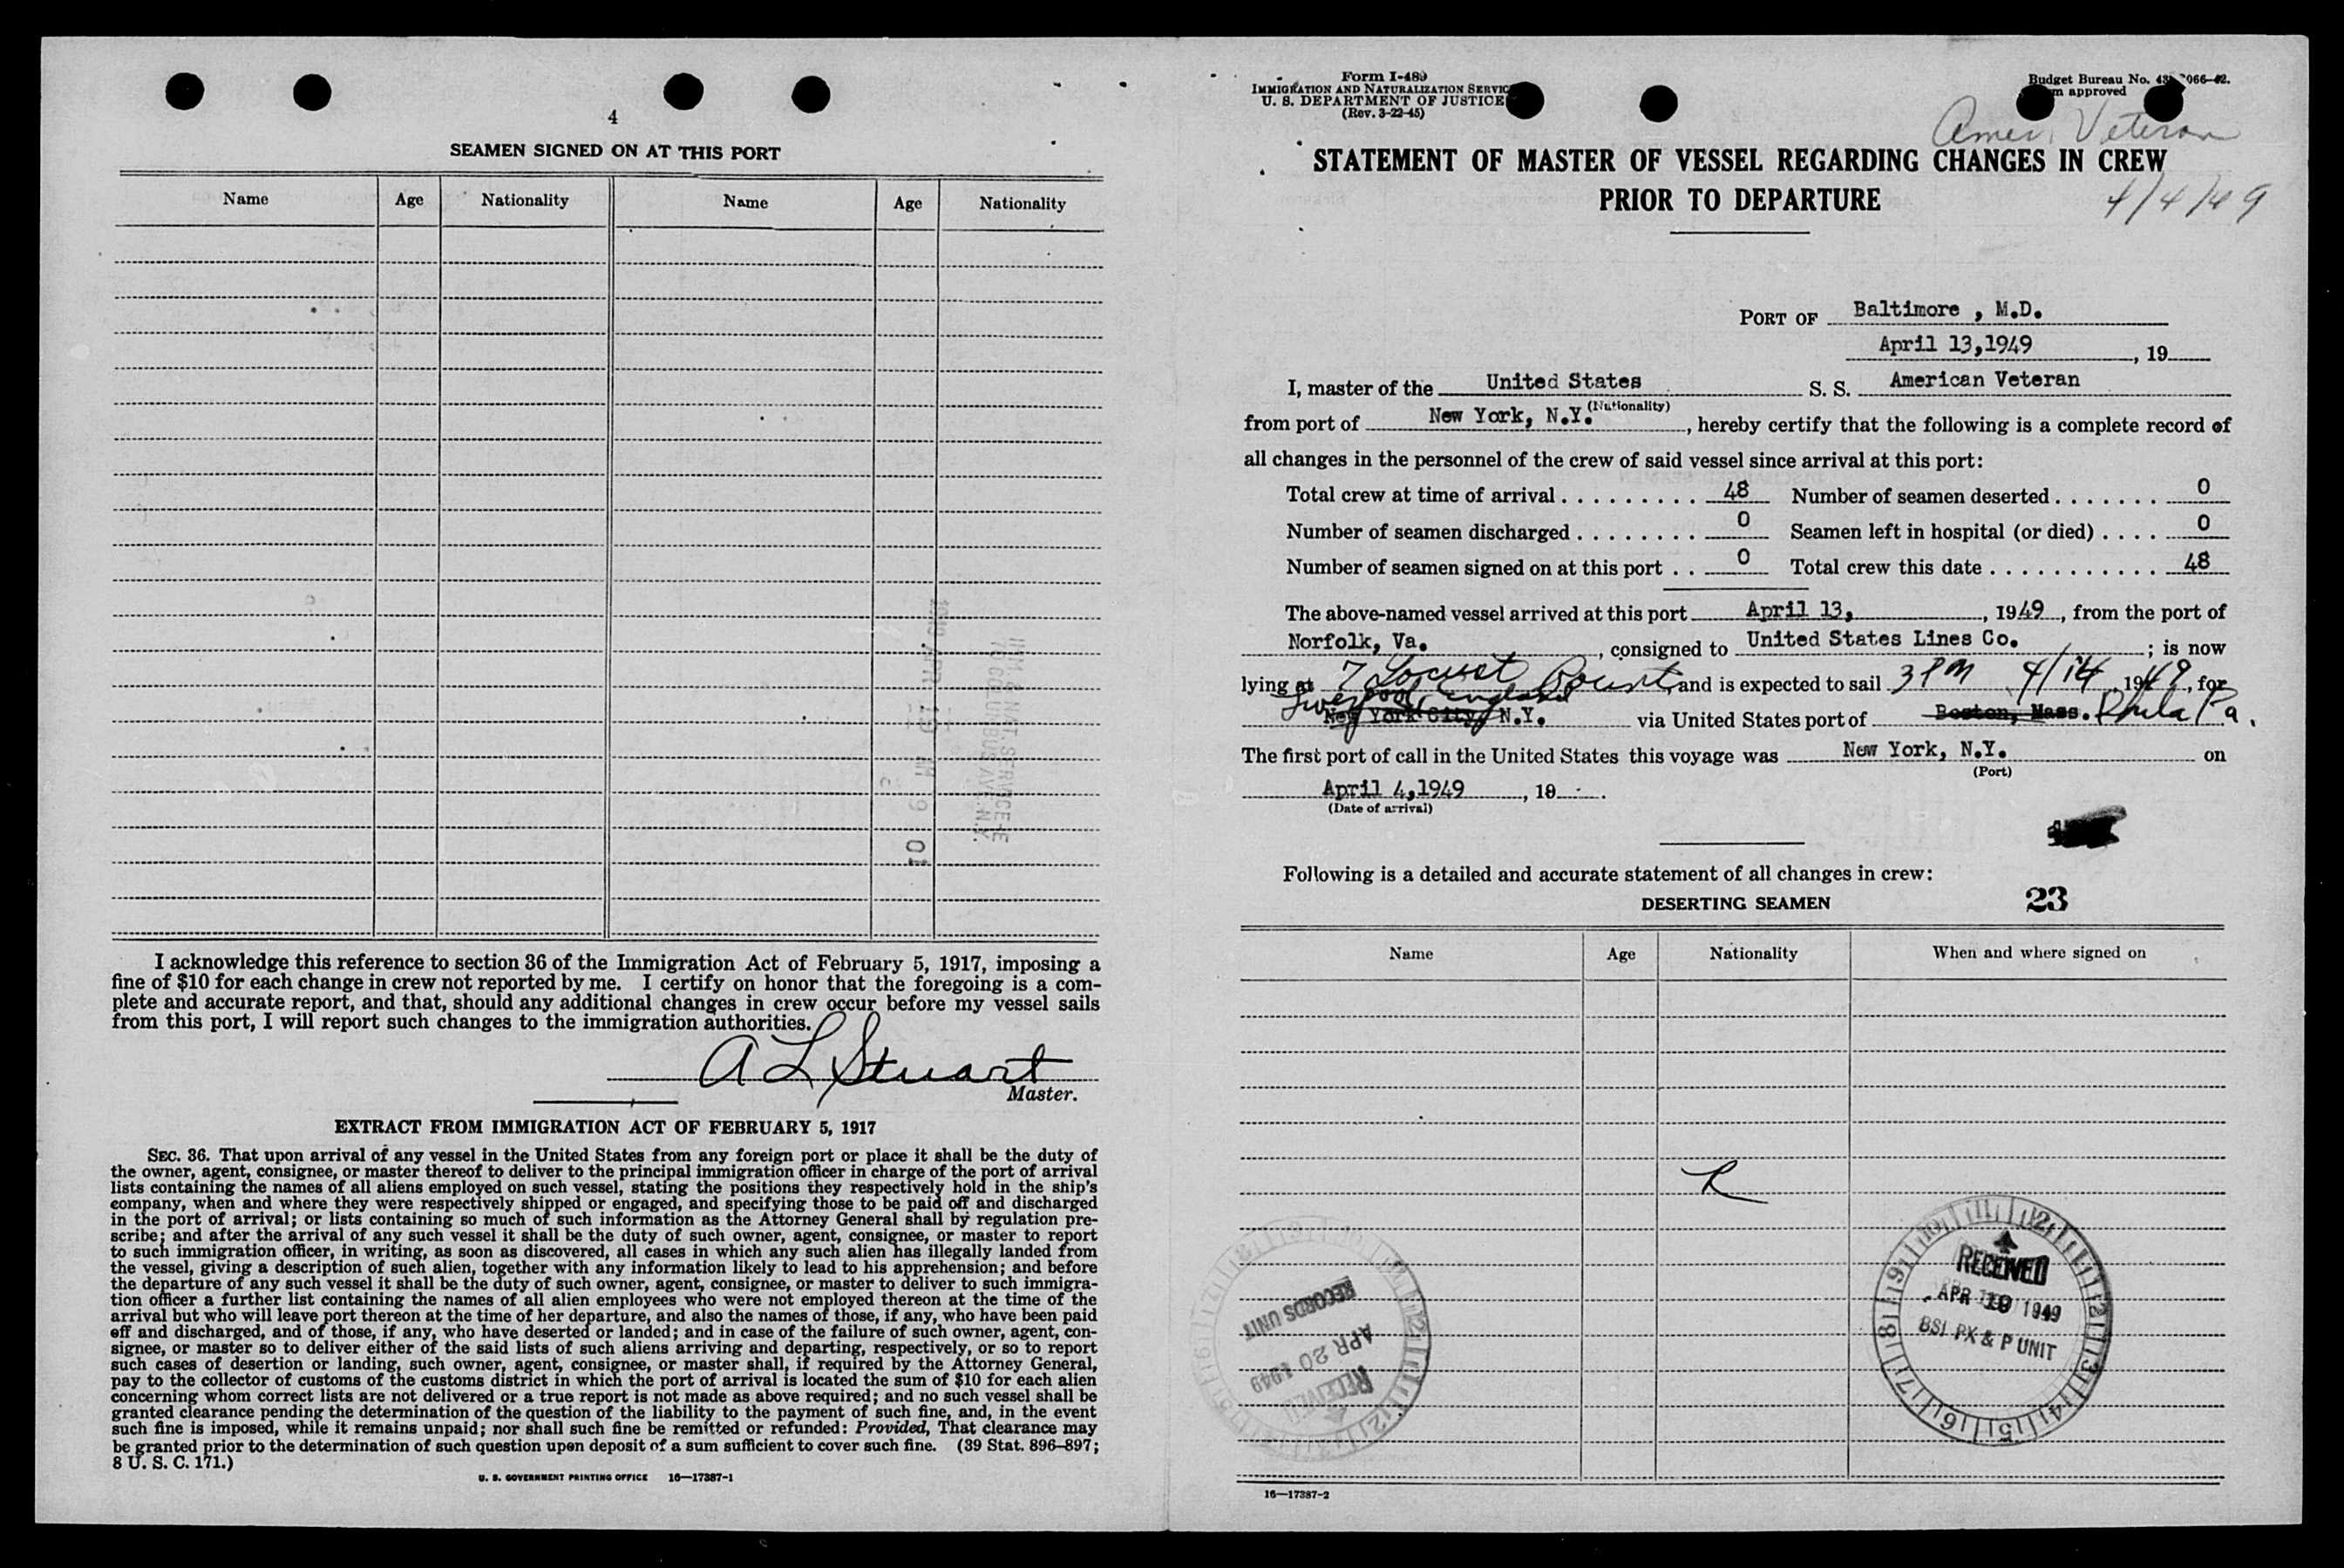 4
SEAMEN SIGNED ON AT THIS PORT
Name Age Nationality Name Age Nationality
I acknowledge this reference to section 36 of the Immigration Act of February 5, 1917, imposing a
fine of $10 for each change in crew not reported by me. I certify on honor that the foregoing is a com-
plete and accurate report, and that, should any additional changes in crew occur before my vessel sails
from this port, I will report such changes to the immigration authorities.
A L Stuart
Master.
EXTRACT FROM IMMIGRATION ACT OF FEBRUARY 5, 1917
SEC. 36. That upon arrival of any vessel in the United States from any foreign port or place it shall be the duty of
the owner, agent, consignee, or master thereof to deliver to the principal immigration officer in charge of the port of arrival
lists containing the names of all aliens employed on such vessel, stating the positions they respectively hold in the ship's
company, when and where they were respectively shipped or engaged, and specifying those to be paid off and discharged
in the port of arrival; or lists containing so much of such information as the Attorney General shall by regulation pre-
scribe; and after the arrival of any such vessel it shall be the duty of such owner, agent, consignee, or master to report
to such immigration officer, in writing, as soon as discovered, all cases in which any such alien has illegally landed from
the vessel, giving a description of such alien, together with any information likely to lead to his apprehension; and before
the departure of any such vessel it shall be the duty of such owner, agent, consignee, or master to deliver to such immigra-
tion officer a further list containing the names of all alien employees who were not employed thereon at the time of the
arrival but who will leave port thereon at the time of her departure, and also the names of those, if any, who have been paid
off and discharged, and of those, if any, who have deserted or landed; and in case of the failure of such owner, agent, con-
signee, or master so to deliver either of the said lists of such aliens arriving and departing, respectively, or so to report
such cases of desertion or landing, such owner, agent, consignee, or master shall, if required by the Attorney General,
pay to the collector of customs of the customs district in which the port of arrival is located the sum of $10 for each alien
concerning whom correct lists are not delivered or a true report is not made as above required; and no such vessel shall be
granted clearance pending the determination of the question of the liability to the payment of such fine, and, in the event
such fine is imposed, while it remains unpaid; nor shall such fine be remitted or refunded: Provided, That clearance may
be granted prior to the determination of such question upon deposit of a sum sufficient to cover such fine. (39 Stat. 896–897;
8 U. S. C. 171.)
U. S. GOVERNMENT PRINTING OFFICE 16—17387-1
Form I-489
IMMIGRATION AND NATURALIZATION SERVIC
U. S. DEPARTMENT OF JUSTICE
(Rev. 3-22-45)
Budget Bureau No. 066-42.
approved
Amer. Veteran
STATEMENT OF MASTER OF VESSEL REGARDING CHANGES IN CREW
PRIOR TO DEPARTURE
4/4/49
PORT OF Baltimore , M.D.
April 13,1949 , 19
I, master of the United States S. S. American Veteran
(Nationality)
from port of New York, N.Y. , hereby certify that the following is a complete record of
all changes in the personnel of the crew of said vessel since arrival at this port:
Total crew at time of arrival . . . . . . . . . 48 Number of seamen deserted . . . . . . . 0
Number of seamen discharged . . . . . . . . 0 Seamen left in hospital (or died) . . . . 0
Number of seamen signed on at this port . . 0 Total crew this date . . . . . . . . . . . 48
The above-named vessel arrived at this port April 13, , 1949 , from the port of
Norfolk, Va. , consigned to United States Lines Co. ; is now
lying at 7 Locust Point and is expected to sail 3 PM 4/14 1949, for
Liverpool England
New York City, N.Y. via United States port of Boston, Mass. Phila Pa.
The first port of call in the United States this voyage was New York, N.Y. on
(Port)
April 4,1949 , 19 .
(Date of arrival)
Following is a detailed and accurate statement of all changes in crew:
DESERTING SEAMEN 23
Name Age Nationality When and where signed on
RECEIVED
APR 19 1949
BSI PX & P UNIT
RECEIVED
APR 20 1949
RECORDS UNIT
16—17387-2